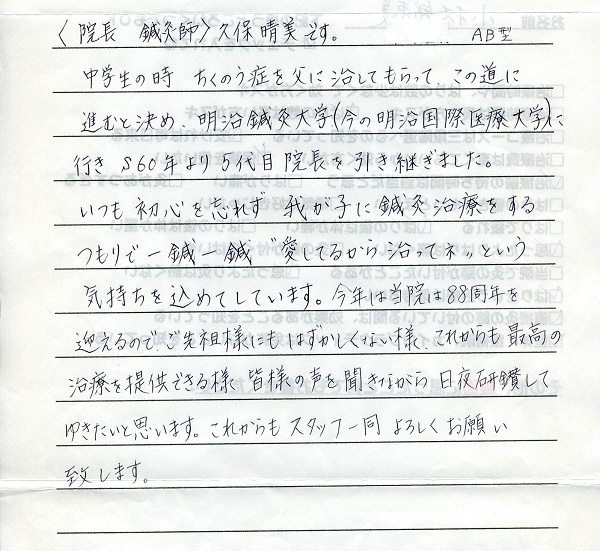 〈院長 鍼灸師〉久保晴美です。 AB型
中学生の時 ちくのう症を父に治してもらって、この道に
進むと決め、明治鍼灸大学(今の明治国際医療大学)に
行き S60年より5代目院長を引き継ぎました。
いつも初心を忘れず 我が子に鍼灸治療をする
つもりで一鍼一鍼〝愛してるから治ってネ〟という
気持ちを込めてしています。今年は当院は88周年を
迎えるので、ご先祖様にもはずかしくない様、これからも最高の
治療を提供できる様、皆様の声を聞きながら、日夜研鑽して
ゆきたいと思います。これからもスタッフ一同よろしくお願い
致します。